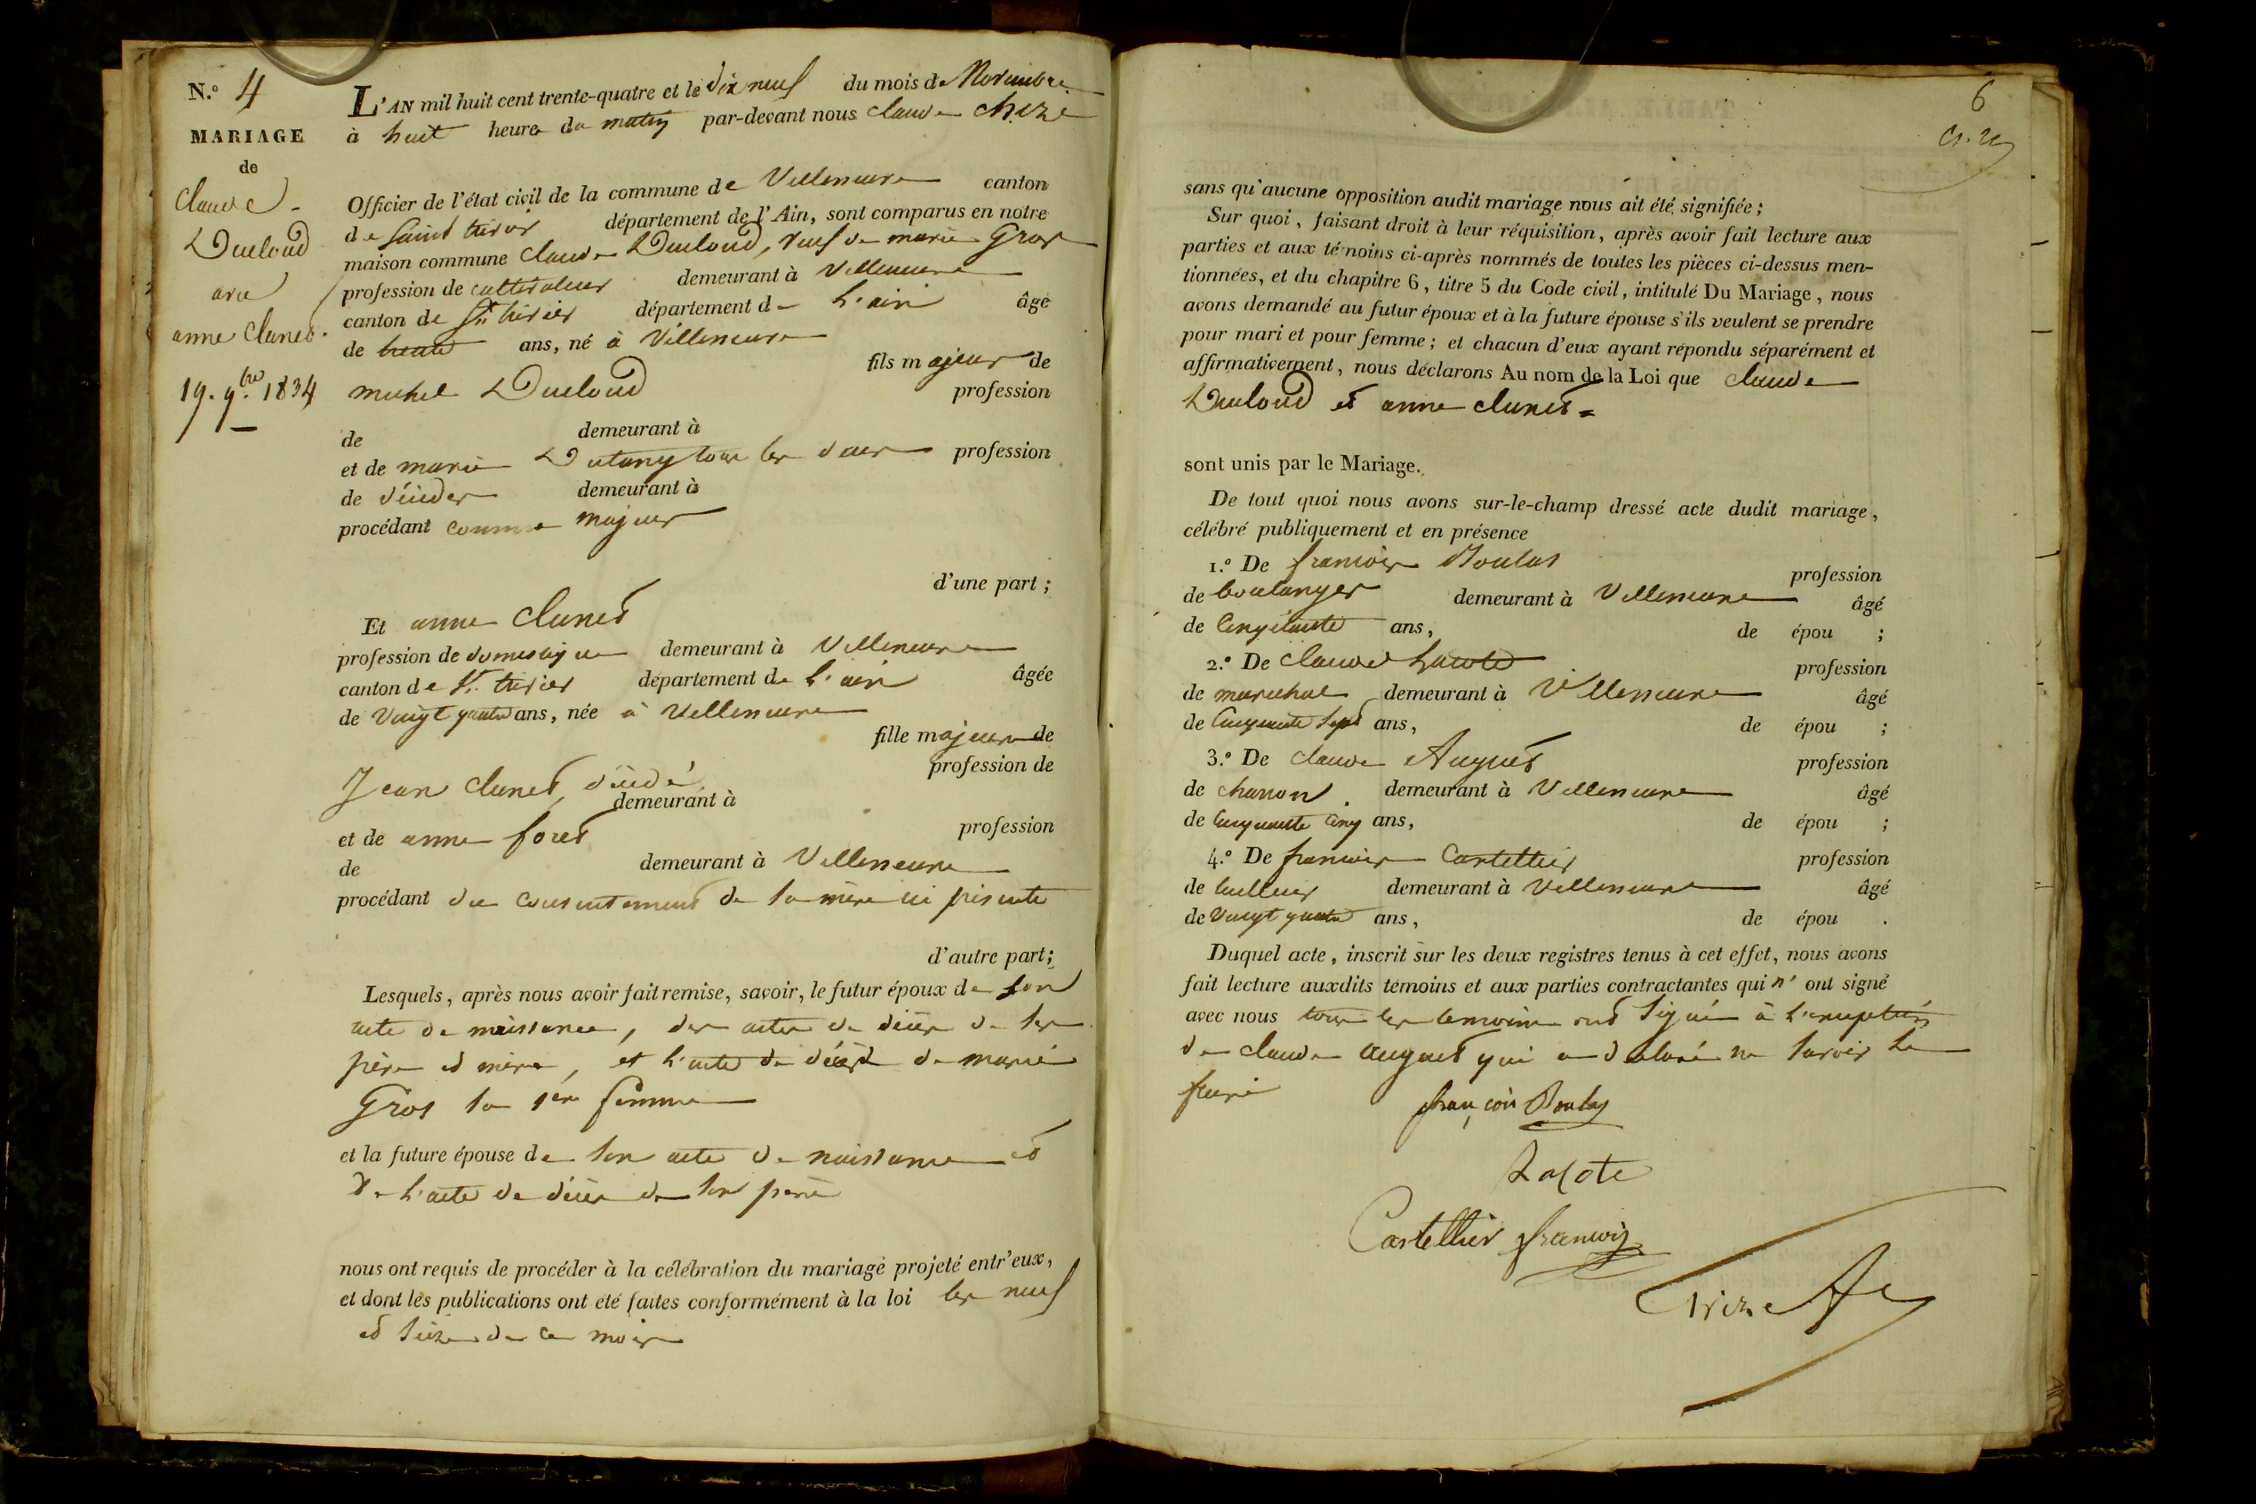 N.º 4
MARIAGE
de
Claude
Ducloud
avec
anne Clunet.
19. 9bre 1834
L'AN mil huit cent trente-quatre et le dix neuf du mois de Novembre
à huit heure du matin par-devant nous claude
Officier de l'état civil de la commune de Villeneuve canton
de Saint trivier département de l'Ain, sont comparus en notre
maison commune Claude Ducloud, veuf de marie Gros
profession de cultivateur demeurant à Villeneuve
canton de St trivier département de L'ain âgé
de trente ans, né à Villeneuve
fils majeur de
michel Ducloud profession
de demeurant à
et de marie tous les deux profession
de décédes demeurant à
procédant comme majeur
d'une part ;
Et anne Clunet
profession de domestique demeurant à Villeneuve
canton de St. trivier département de L'ain âgée
de Vingt quatre ans, née à Villeneuve
fille majeure de
Jean Clunet, décédé profession de
demeurant à
et de anne foret profession
de demeurant à Villeneuve
procédant du consentement de sa mère ici présente
d'autre part ;
Lesquels, après nous avoir fait remise, savoir, le futur époux de son
acte de naissance, des actes de décès de ses
père et mère, et l'acte de décès de marie
Gros sa 1ère femme
et la future épouse de son acte de naissance et
de l'acte de décès de son père
nous ont requis de procéder à la célébration du mariage projeté entr'eux,
et dont les publications ont été faites conformément à la loi les neuf
et seize de ce mois
6
sans qu'aucune opposition audit mariage nous ait été signifiée ;
Sur quoi, faisant droit à leur réquisition, après avoir fait lecture aux
parties et aux témoins ci-après nommés de toutes les pièces ci-dessus men-
tionnées, et du chapitre 6, titre 5 du Code civil, intitulé Du Mariage, nous
avons demandé au futur époux et à la future épouse s'ils veulent se prendre
pour mari et pour femme ; et chacun d'eux ayant répondu séparément et
affirmativement, nous déclarons Au nom de la Loi que Claude
Ducloud et anne clunet =
sont unis par le Mariage.
De tout quoi nous avons sur-le-champ dressé acte dudit mariage,
célébré publiquement et en présence
1.º De francois Boulas profession
de boulanger demeurant à Villeneuve âgé
de Cinquante ans, de épou ;
2.º De Claude Lacote profession
de marechal demeurant à Villeneuve âgé
de Cinquante sept ans, de épou ;
3.º De Claude Auguet profession
de charron demeurant à Villeneuve âgé
de Cinquante cinq ans, de épou ;
4.º De francois Castellier profession
de tailleur demeurant à Villeneuve âgé
de Vingt quatre ans, de épou .
Duquel acte, inscrit sur les deux registres tenus à cet effet, nous avons
fait lecture auxdits témoins et aux parties contractantes qui n' ont signé
avec nous tous les temoins ont signé à l'exception
de claude auguet qui a déclaré ne savoir le
faire
françois Boulas
Lacote
Castellier francois